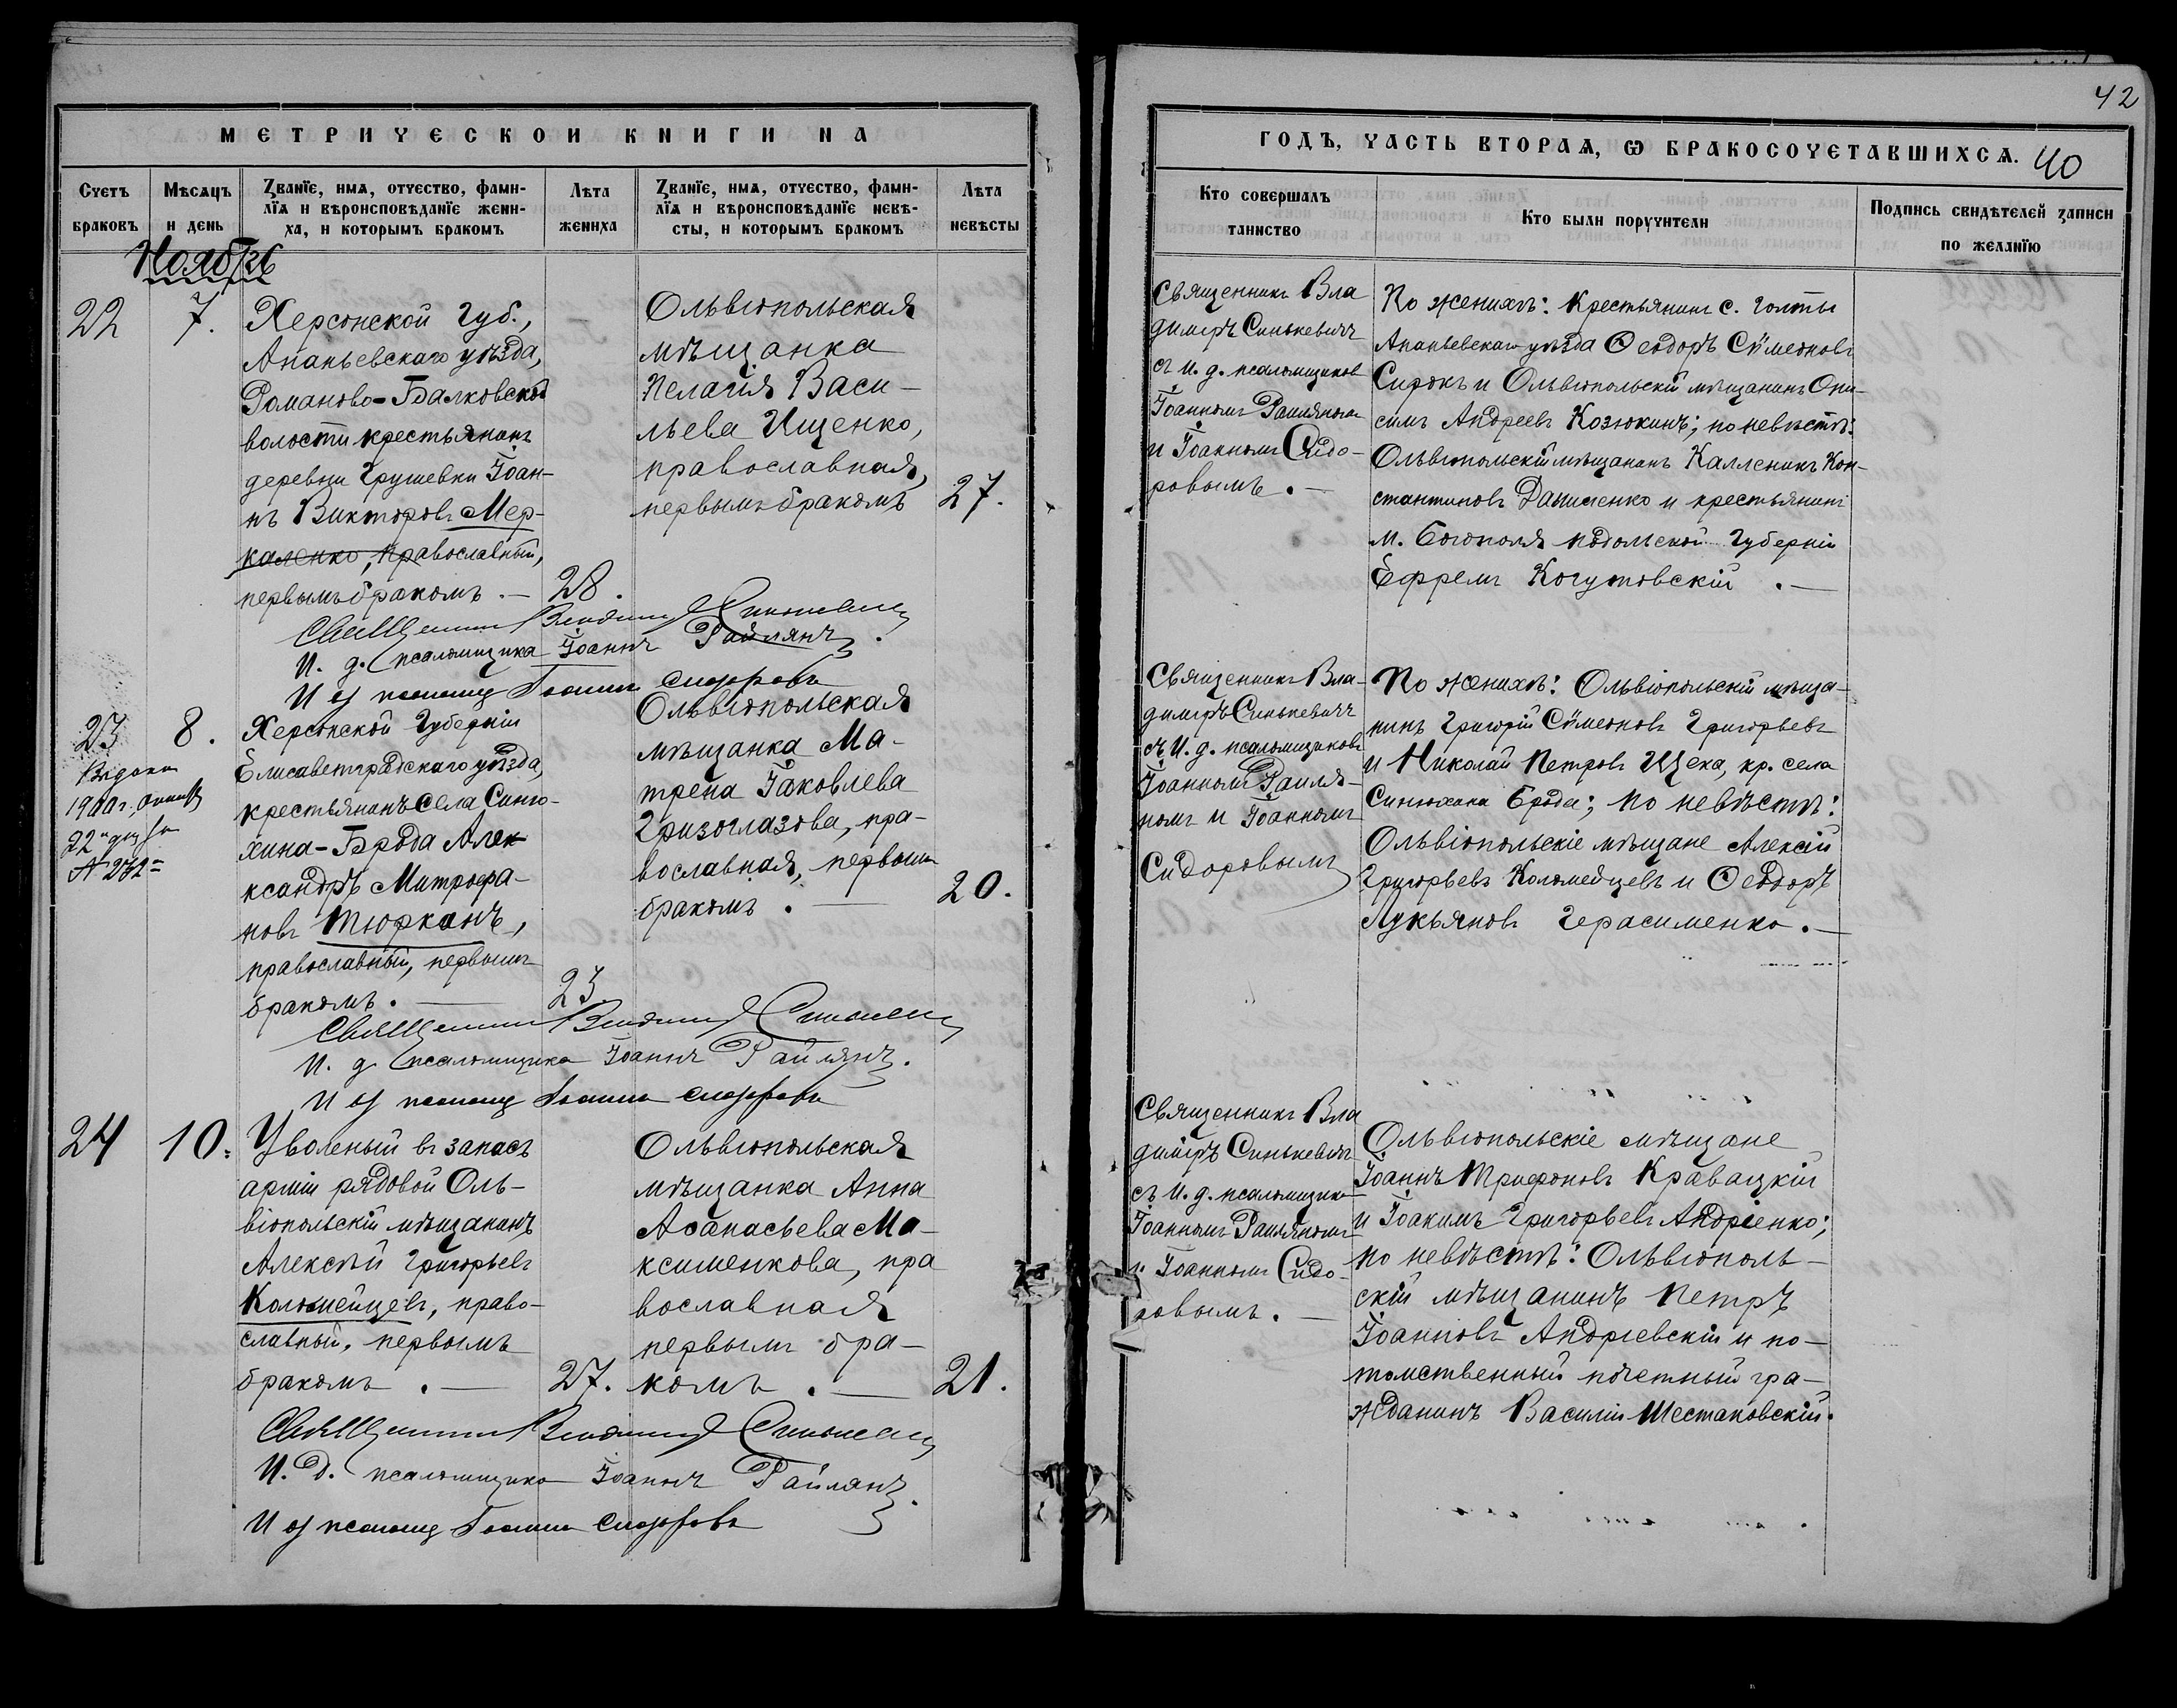 МЕТРИЧЕСКОЙ КНИГИ НА
Счетъ браковъ
Мѣсяцъ и день
Званїе, имѧ, отчество, фами-
лїѧ и вѣроисповѣданїе жени-
ха, и которымъ бракомъ
Лѣта жениха
Званїе, имѧ, отчество, фами-
лїѧ и вѣроисповѣданїе невѣ-
сты, и которымъ бракомъ
Лѣта невѣсты
Ноябрь
22
7.
Херсонской Губ.,
Ананьевскаго уѣзда,
Романово-Балковской
волости крестьянинъ
деревни Грушевки Іоан-
нъ Викторовъ Мер-
каленко, православный,
первымъ бракомъ. —
28.
Ольвіопольская
мѣщанка
Пелагія Васи-
льева Ищенко,
православная,
первымъ бракомъ
27.
Священникъ Владиміръ Синькевичъ
И. д. псаломщика Іоаннъ Райлянъ.
И д псаломщ Іоаннъ Сидоровъ
23
8.
Выдана
1900 г.
22
№ 272
Херсонской Губерніи
Елисаветградскаго уѣзда,
крестьянинъ села Синю-
хина-Брода Алек-
ксандръ Митрофа-
новъ Тюрканъ,
православный, первымъ
бракомъ. —
23
Ольвіопольская
мѣщанка Ма-
трена Іаковлева
Гризоглазова, пра-
вославная, первымъ
бракомъ. —
20.
Священникъ Владиміръ Синькевичъ
И. д. псаломщика Іоаннъ Райлянъ.
И д псаломщ Іоаннъ Сидоровъ
24
10.
Уволеный въ запасъ
арміи рядовой Оль-
віопольскій мѣщанинъ
Алексѣй Григорьевъ
Коломейцевъ, право-
славный, первымъ
бракомъ. —
27.
Ольвіопольская
мѣщанка Анна
Аѳанасьева Ма-
ксименкова, пра
вославная
первымъ бра-
комъ. —
21.
Священникъ Владиміръ Синькевичъ
И. Д. псаломщика Іоаннъ Райлянъ.
И д псаломщ Іоаннъ Сидоровъ
42
ГОДЪ, ЧАСТЬ ВТОРАѦ, Ѿ БРАКОСОЧЕТАВШИХСѦ.
40
Кто совершалъ
таинство
Кто были поручители
Подпись свидѣтелей записи
по желанїю
Священникъ Вла
диміръ Синькевичъ
съ И. д. псаломщиковъ
Іоанномъ Райляномъ
и Іоанномъ Сидо-
ровымъ. —
По женихѣ: Крестьянинъ с. Голты
Ананьевскаго уѣзда Ѳеодоръ Сѵмеоновъ
Сирокъ и Ольвіопольскій мѣщанинъ Они-
симъ Андреевъ Козюкинъ; по невѣстѣ:
Ольвіопольскій мѣщанинъ Калленикъ Кон-
стантиновъ Данименко и крестьянинъ
м. Богополя Подольской Губерніи
Ефремъ Когутовскій. —
Священникъ Вла-
диміръ Синькевичъ
съ И. д. псаломщиковъ
Іоанномъ Райля-
номъ и Іоанномъ
Сидоровымъ
По женихѣ: Ольвіопольскій мѣща-
нинъ Григорій Сѵмеоновъ Григорьевъ
и Николай Петровъ Щека, кр. села
Синюхина Брода; по невѣстѣ:
Ольвіопольскіе мѣщане Алексій
Григорьевъ Коломейцевъ и Ѳеодоръ
Лукьяновъ Герасименко. —
Священникъ Вла
диміръ Синькевичъ
съ И. д. псаломщико
Іоанномъ Райляномъ
и Іоанномъ Сидо-
ровымъ. —
Ольвіопольскіе мѣщане
Іоаннъ Трифоновъ Кравацкій
и Іоакимъ Григорьевъ Андріенко;
по невѣстѣ: Ольвіополь-
скій мѣщанинъ Петръ
Іоанновъ Андріевскій и по-
томственный почетный гра-
жданинъ Василій Шестаковскій.